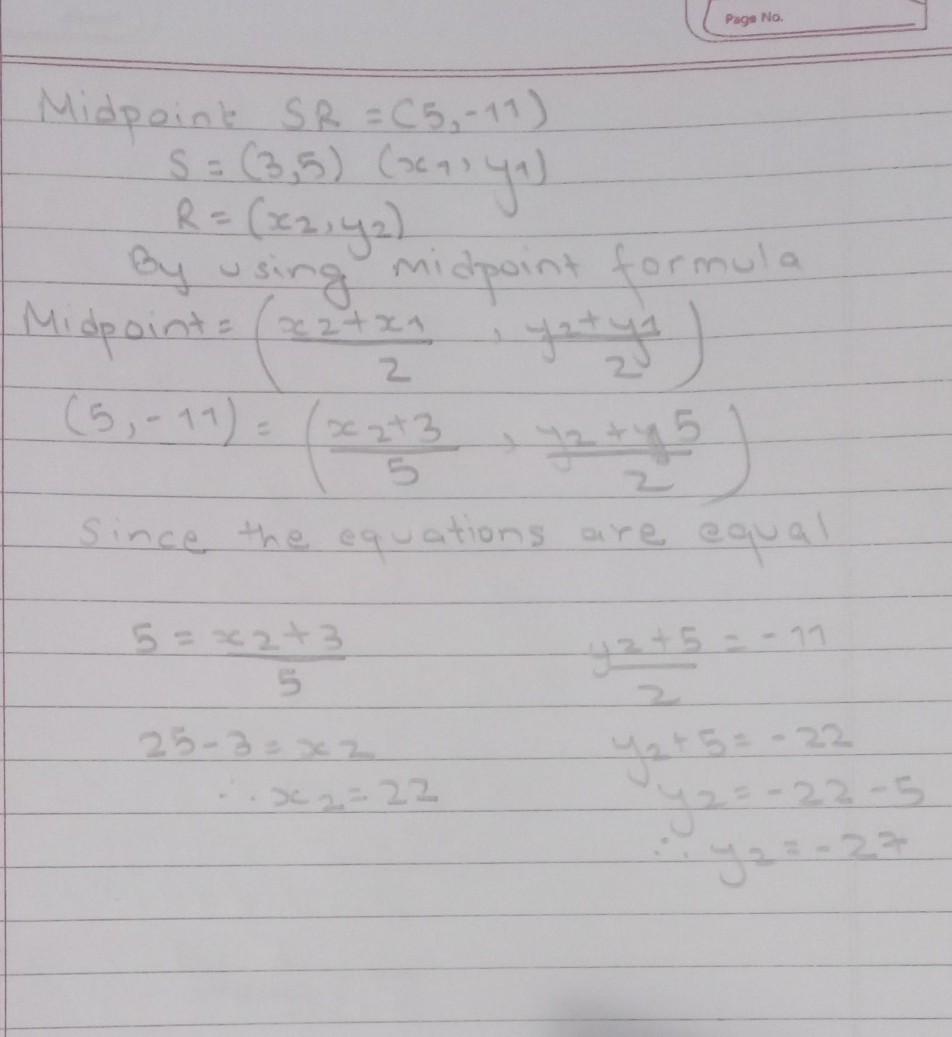 Page No.
Midpoint SR = (5,-11)
S = (3,5) (x1, y1)
R = (x2, y2)
By using midpoint formula
Midpoint = (x2+x1/2, y2+y1/2)
(5,-11) = (x2+3/5, y2+5/2)
Since the equations are equal
5 = x2+3/5 y2+5/2 = -11
25-3 = x2 y2+5 = -22
∴ x2 = 22 y2 = -22-5
∴ y2 = -27